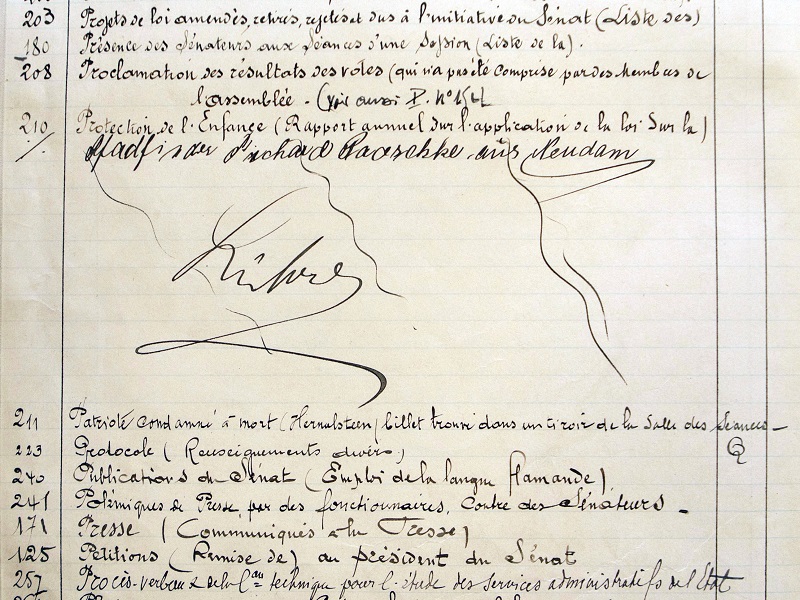 203 Projets de loi amendés, retirés, rejetés et dus à l'initiative du Sénat (Liste des)
180 Présence des Sénateurs aux Séances d'une Session (Liste de la).
208 Proclamation des résultats des votes (qui n'a pas été comprise par des Membres de
l'assemblée - (voir aussi P. n°
210 Protection de l'Enfance (Rapport annuel sur l'application de la loi sur la)
Pfadfinder Richard Paeschke aus Neudam
211 Patriote condamné à mort (Hernalsteen) billet trouvé dans un tiroir de la Salle des Séances -
223 Protocole (Renseignements divers)
240 Publications du Sénat (Emploi de la langue flamande)
241 Polémiques de Presse par des fonctionnaires, contre des Sénateurs -
171 Presse (Communiqués à la Presse)
125 Pétitions (Remise de) au président du Sénat
257 Procès-verbaux de la technique pour l'étude des services administratifs de l'Etat